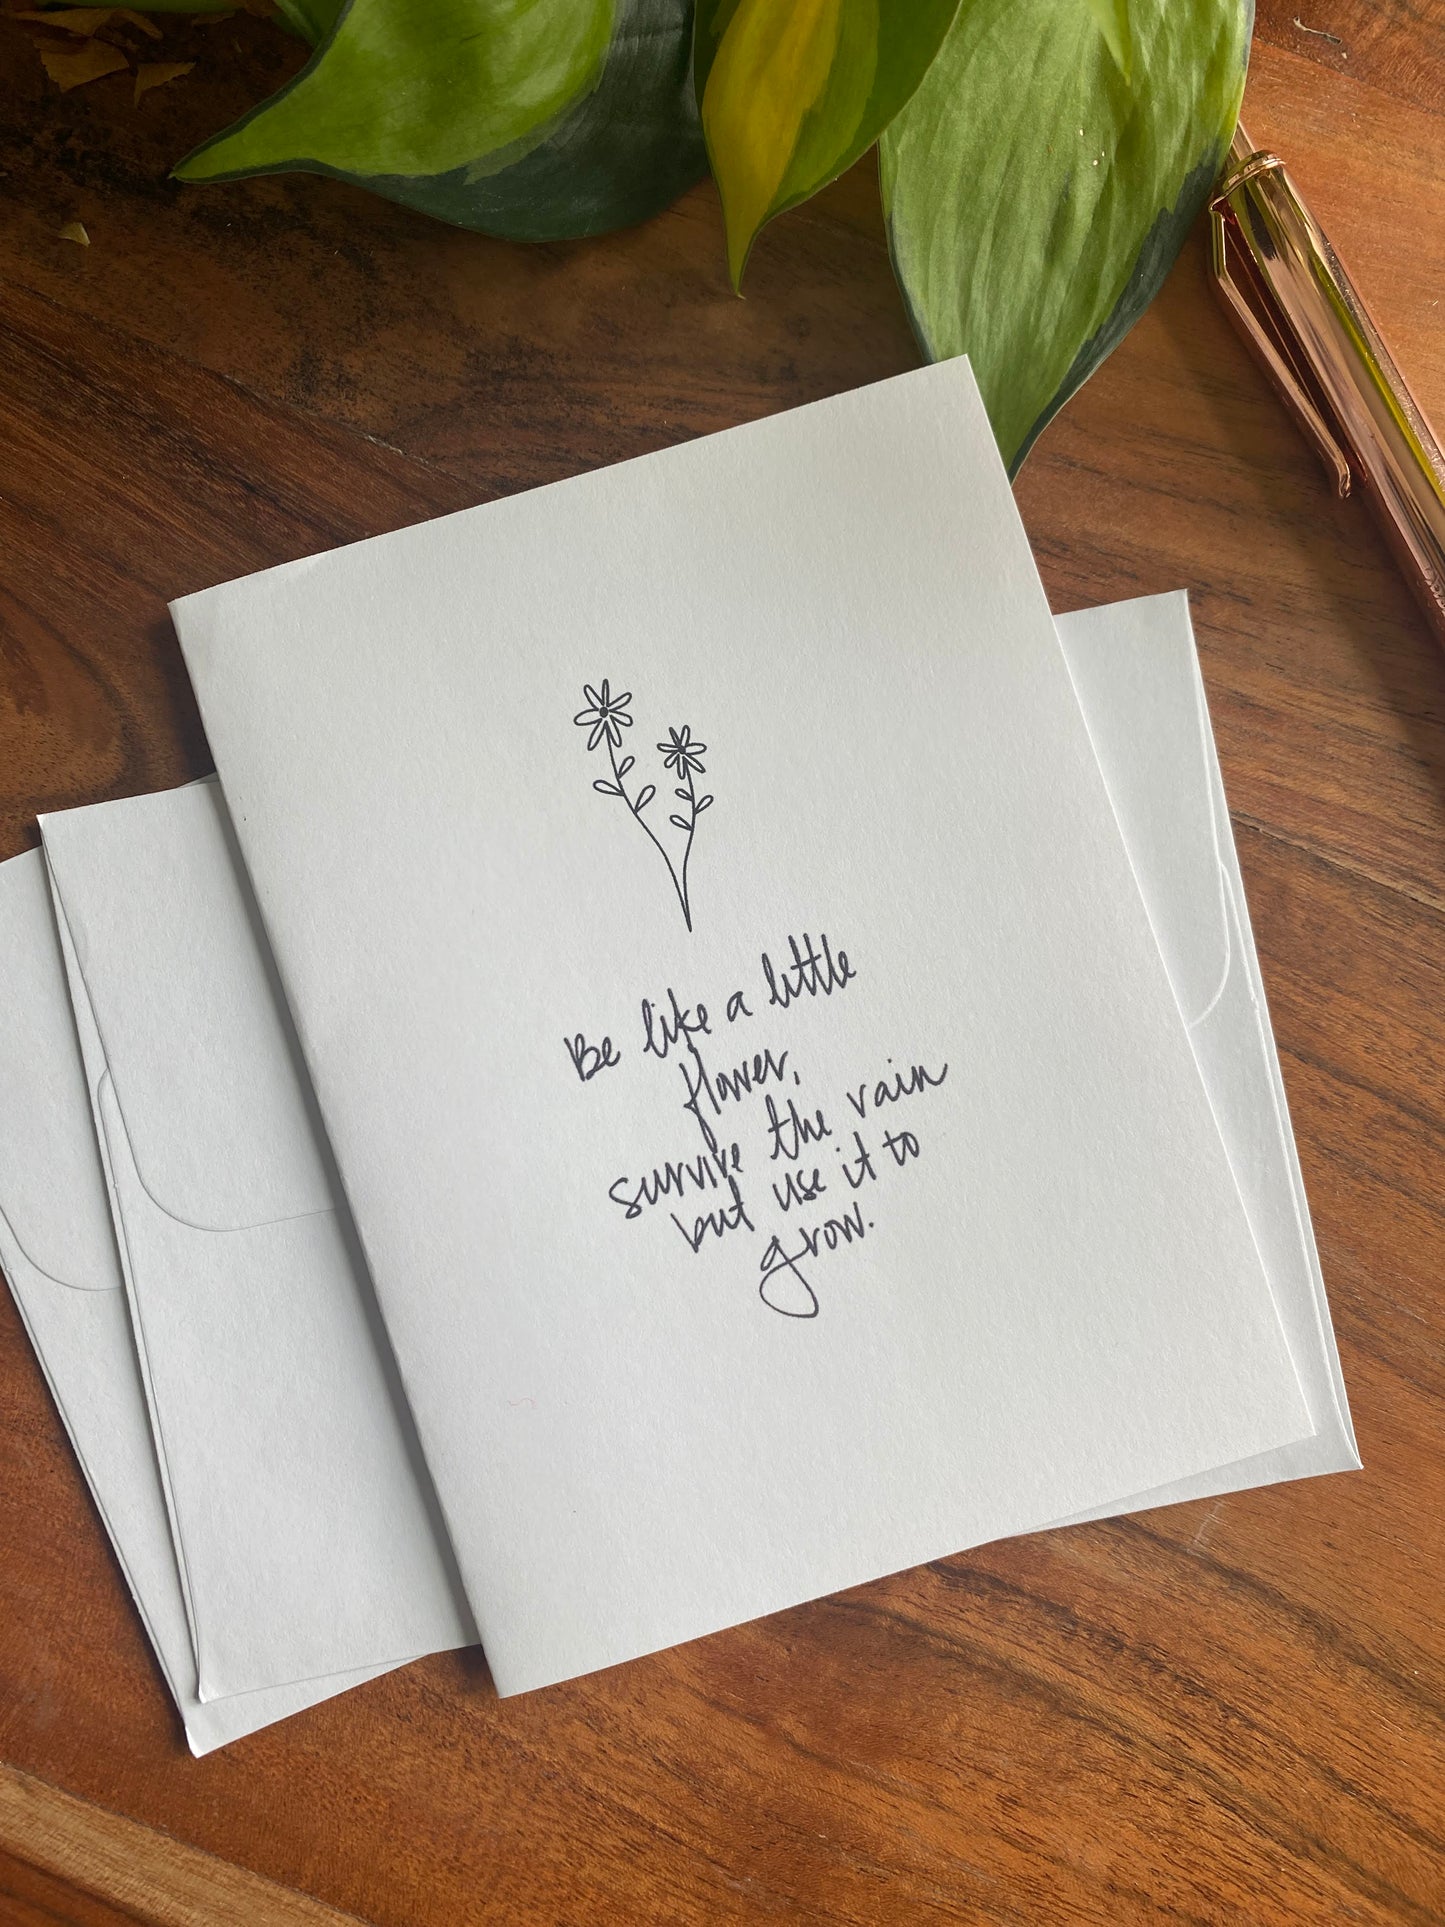 Be like a little
flower,
survive the rain
but use it to
grow.